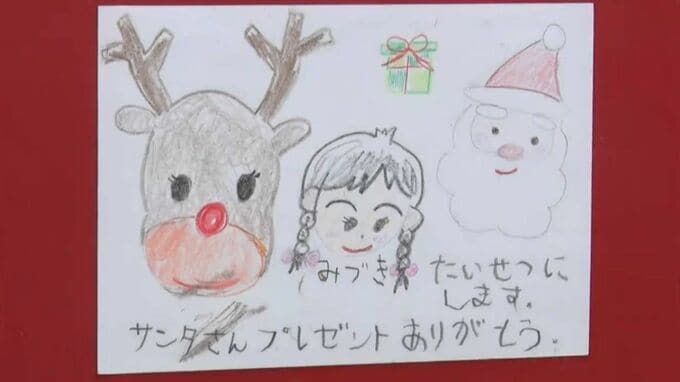 みづき
たいせつに
します。
サンタさんプレゼントありがもう。